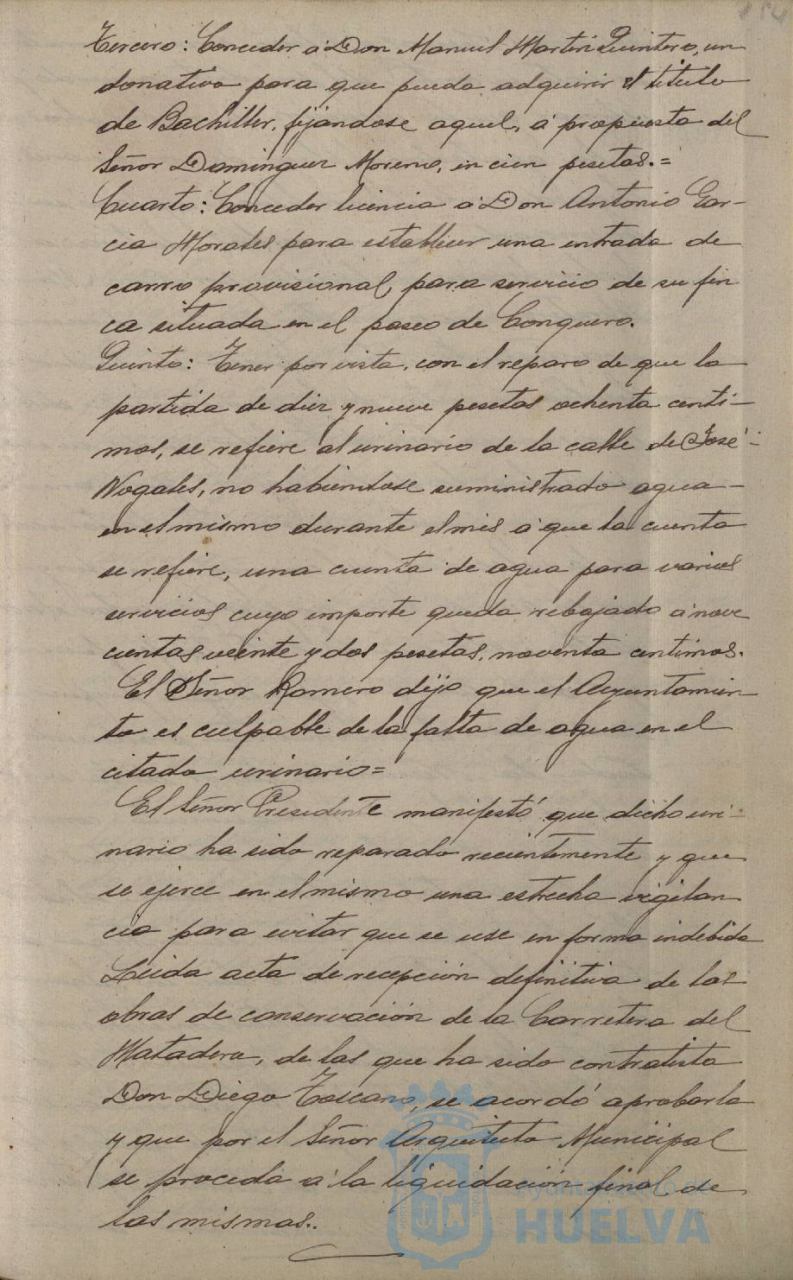 154
Tercero: Conceder á Don Manuel Martin Quintero, un
donativo para que pueda adquirir el titulo
de Bachiller, fijandose aquel, á propuesta del
Señor Dominguez Moreno, en cien pesetas.=
Cuarto: Conceder licencia á Don Antonio Gar-
cia Morales para establecer una entrada de
carro provisional, para servicio de su fin
ca situada en el paseo de Conquero.
Quinto: Tener por vista, con el reparo de que la
partida de diez y nueve pesetas ochenta centi-
mos, se refiere al urinario de la calle de José
Nogales, no habiendose suministrado agua-
en el mismo durante el mes á que la cuenta
se refiere, una cuenta de agua para varios
servicios cuyo importe queda rebajado á nove
cientas veinte y dos pesetas, noventa centimos.
El Señor Romero dijo que el Ayuntamien-
to es culpable de la falta de agua en el
citado urinario=
El Señor Presidente manifestó que dicho uri-
nario ha sido reparado recientemente y que
se ejerce en el mismo una estrecha vigilan
cia para evitar que se use en forma indebida
Leida acta de recepción definitiva de las
obras de conservación de la Carretera del
Matadero, de las que ha sido contratista
Don Diego Toscano, se acordó aprobarla
y que por el Señor Arquitecto Municipal
se proceda á la liquidación final de
las mismas.
Ayuntamiento de
HUELVA